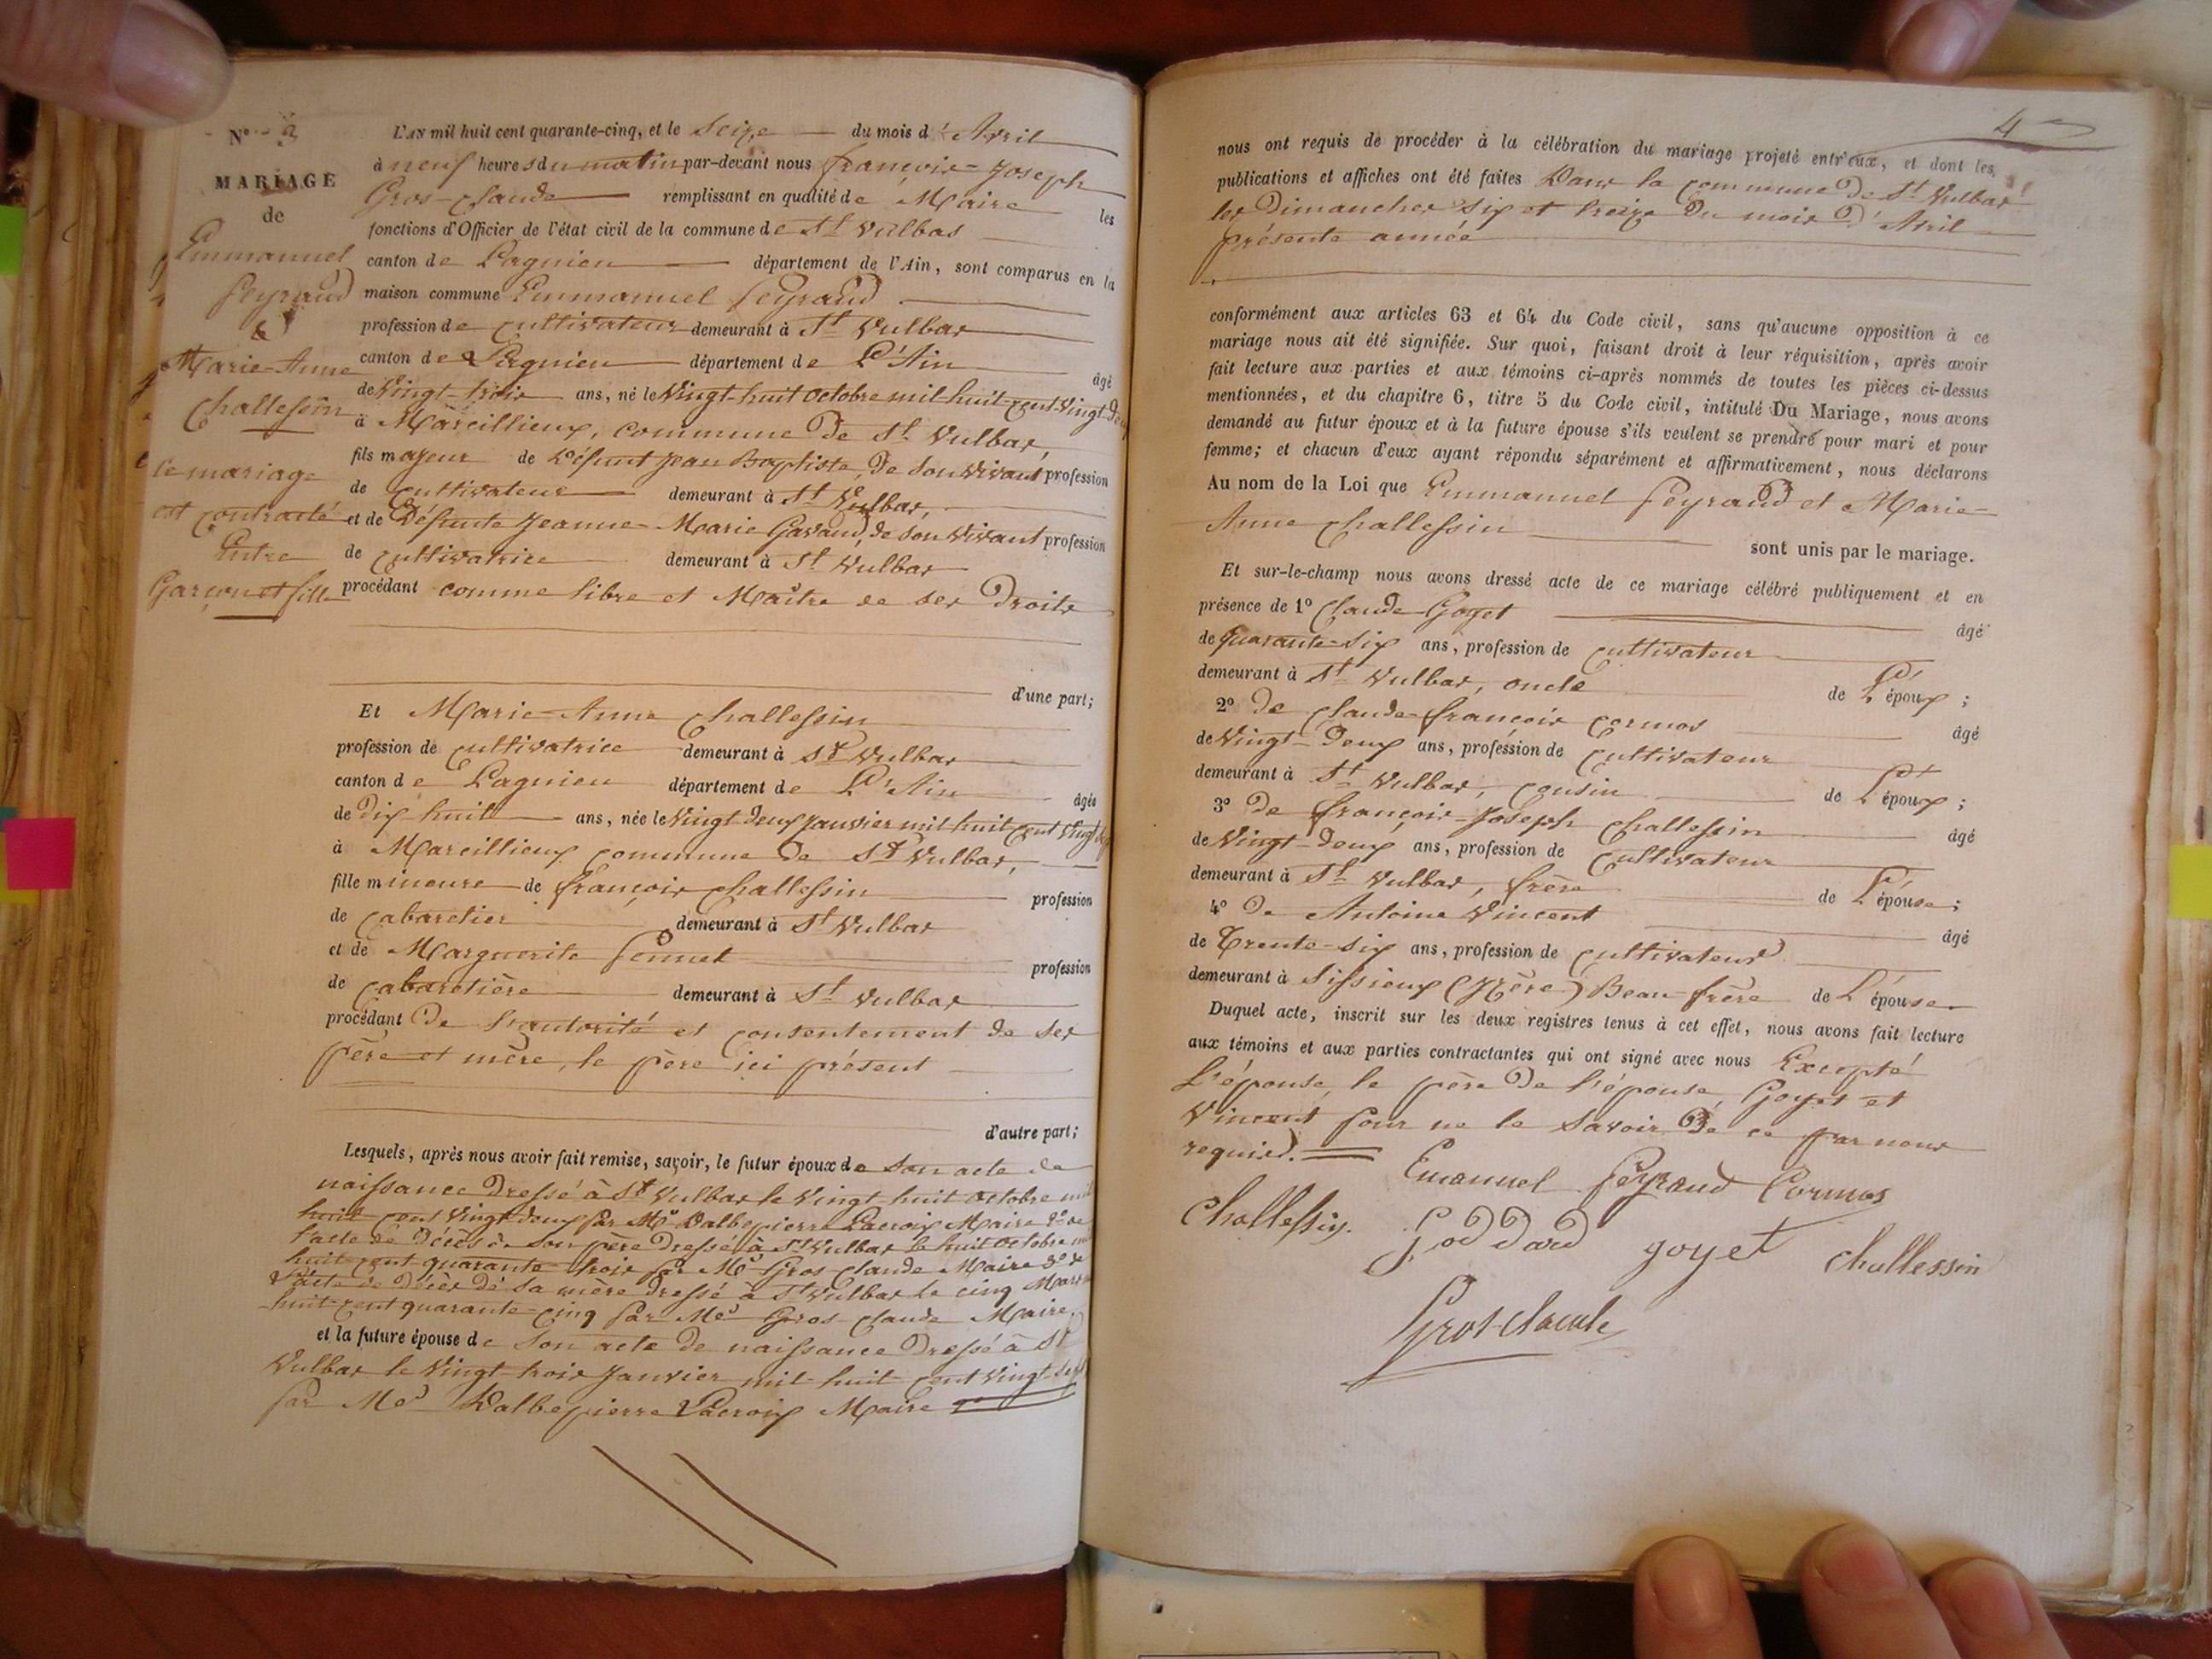 N° 3
MARIAGE
de
Emmanuel
Peyraud
&
Marie-Anne
Challessin
le mariage
est contracté
Entre
Garçon et fille
L'AN mil huit cent quarante-cinq, et le Seize du mois d'Avril
à neuf heures du matin par-devant nous françois-Joseph
Gros-claude remplissant en qualité de Maire les
fonctions d'Officier de l'état civil de la commune de St Vulbas
canton de Lagnieu département de l'Ain, sont comparus en la
maison commune Emmanuel Peyraud
profession de cultivateur demeurant à St Vulbas
canton de Lagnieu département de L'Ain âgé
de Vingt-trois ans, né le Vingt-huit octobre mil-huit-cent Vingt-deux
à Marcillieux, commune de St Vulbas,
fils majeur de Défunt Jean Baptiste, de son Vivant profession
de cultivateur demeurant à St Vulbas,
et de Défunte Jeanne-Marie Gavaud, de son Vivant profession
de cultivatrice demeurant à St Vulbas
procédant comme libre et Maître de ses Droits
d'une part;
Et Marie-Anne Challessin
profession de cultivatrice demeurant à St Vulbas
canton de Lagnieu département de L'Ain âgée
de Dix huit ans, née le Vingt-deux Janvier mil huit cent Vingt
à Marcillieux commune de St Vulbas,
fille mineure de françois Challessin profession
de cabaretier demeurant à St Vulbas
et de Marguerite Ponnet profession
de cabaretière demeurant à St Vulbas
procédant De l'autorité et consentement de ses
père et mère, le père ici présent
d'autre part;
Lesquels, après nous avoir fait remise, savoir, le futur époux de son acte de
naissance Dressé à St Vulbas le Vingt-huit octobre mil
huit cent Vingt deux par Me Dalbepierre Lacroix Maire 2° de
l'acte de Décès de son père Dressé à St Vulbas le huit octobre mil
huit-cent quarante-trois par Me Gros-claude Maire 3° de
l'acte de Décès de sa mère dressé à St Vulbas le cinq Mars
huit-cent quarante-cinq par Me Gros-claude Maire,
et la future épouse de son acte de naissance Dressé à St
Vulbas le Vingt-trois Janvier mil-huit cent Vingt-sept
par Me Dalbepierre Lacroix Maire
4
nous ont requis de procéder à la célébration du mariage projeté entr'eux, et dont les
publications et affiches ont été faites Dans la commune De St Vulbas
les Dimanches Six et treize Du mois D'Avril
présente année
conformément aux articles 63 et 64 du Code civil, sans qu'aucune opposition à ce
mariage nous ait été signifiée. Sur quoi, faisant droit à leur réquisition, après avoir
fait lecture aux parties et aux témoins ci-après nommés de toutes les pièces ci-dessus
mentionnées, et du chapitre 6, titre 5 du Code civil, intitulé Du Mariage, nous avons
demandé au futur époux et à la future épouse s'ils veulent se prendre pour mari et pour
femme; et chacun d'eux ayant répondu séparément et affirmativement, nous déclarons
Au nom de la Loi que Emmanuel Peyraud et Marie-
Anne Challessin sont unis par le mariage.
Et sur-le-champ nous avons dressé acte de ce mariage célébré publiquement et en
présence de 1° Claude Goyet âgé
de quarante-six ans, profession de cultivateur
demeurant à St Vulbas, oncle de L'époux;
2° De Claude-françois Cormos âgé
de Vingt-Deux ans, profession de cultivateur
demeurant à St Vulbas, cousin de L'époux;
3° De françois-Joseph Challessin âgé
de Vingt-deux ans, profession de cultivateur
demeurant à St Vulbas, frère de L'épouse;
4° De Antoine Vincent âgé
de Trente-six ans, profession de cultivateur
demeurant à Sissieux (Isère) Beau-frère de L'épouse
Duquel acte, inscrit sur les deux registres tenus à cet effet, nous avons fait lecture
aux témoins et aux parties contractantes qui ont signé avec nous Excepté
L'épouse, le père De l'épouse, Goyet et
Vincent pour ne le Savoir De ce par nous
requis.
Emanuel Peyraud Cormos
Challessin. Goddard goyet challessin
Gros-claude